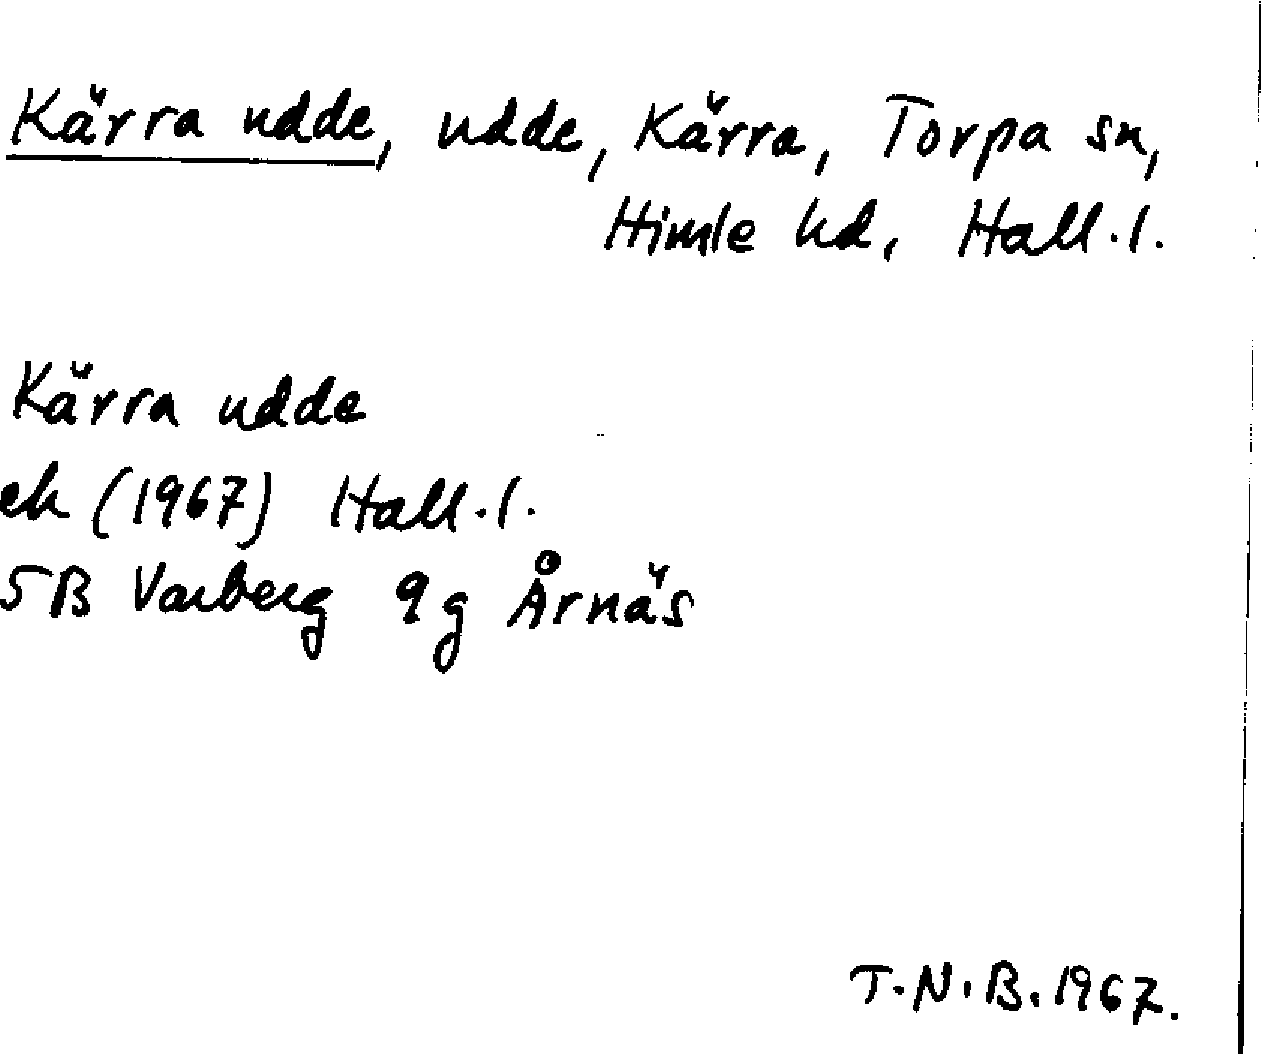 Kärra udde, udde, Kärra, Torpa sn,
Himle hd, Hall.l.
Kärra udde
ek (1967) Hall.l.
5B Varberg 9g Årnäs
T.N.B. 1967.